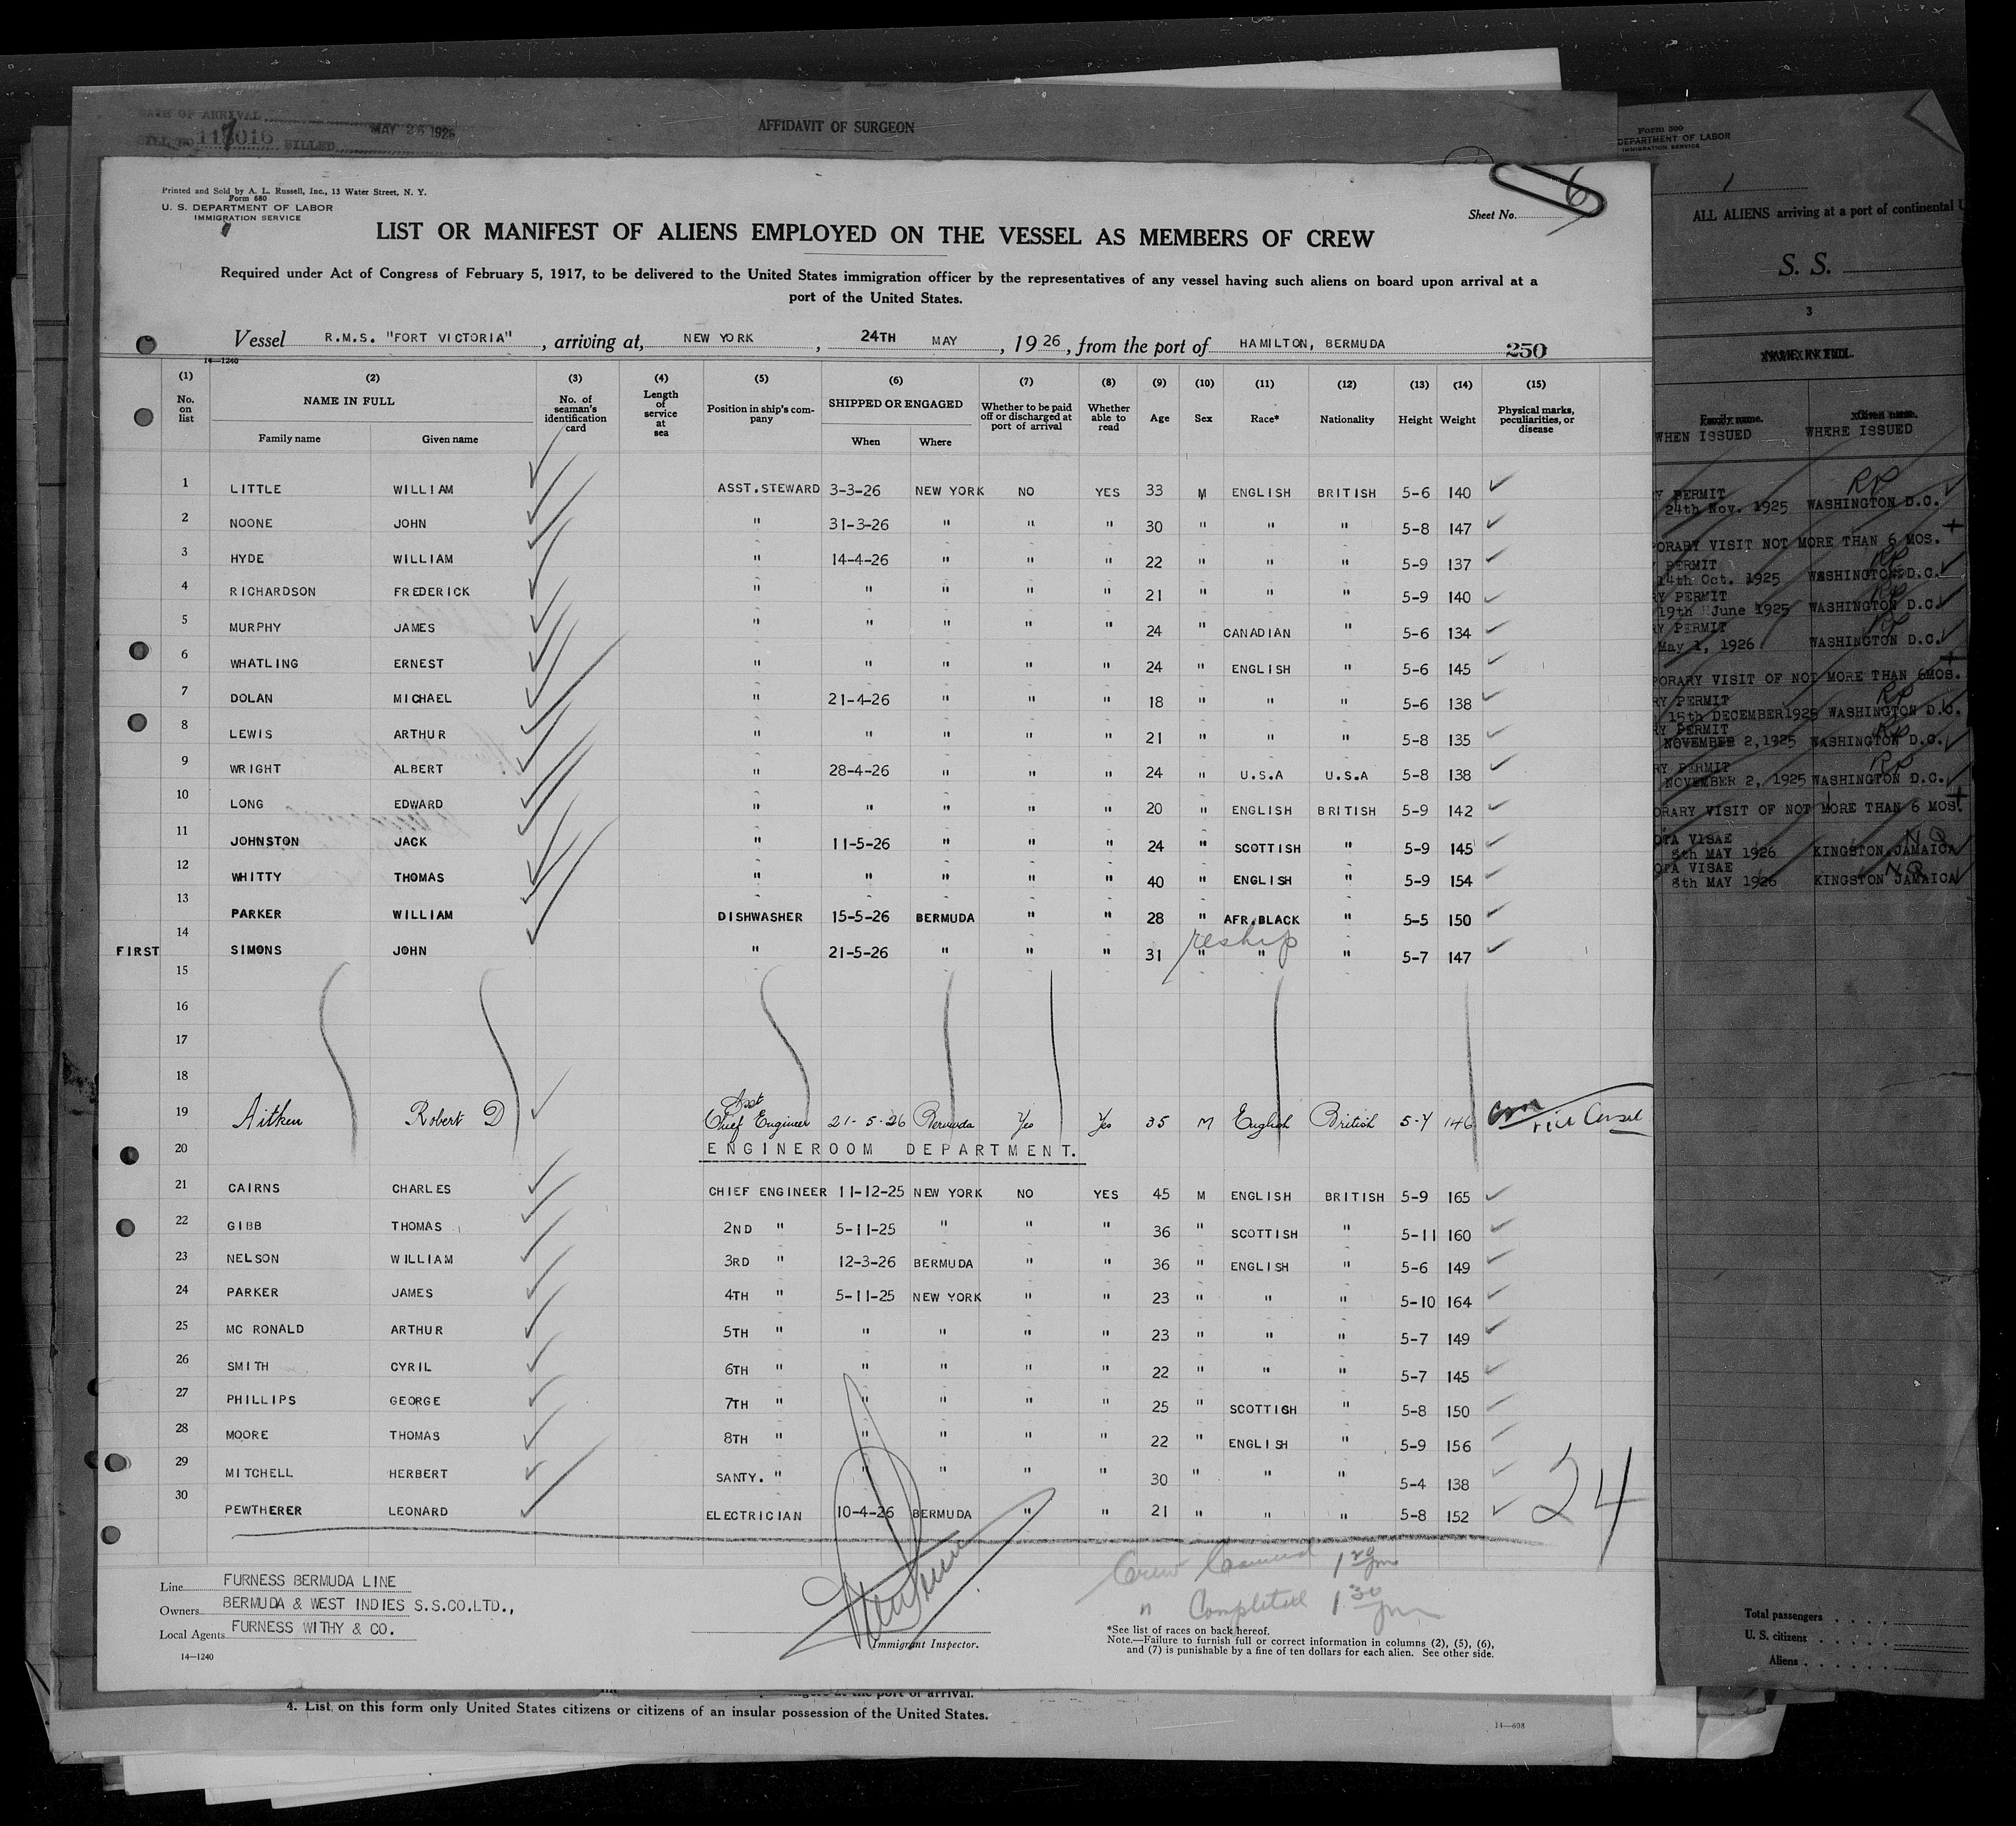 DATE OF ARRIVAL MAY 26 1926
BILL NO. 117016 BILLED
AFFIDAVIT OF SURGEON
Printed and Sold by A. L. Russell, Inc., 13 Water Street, N. Y.
Form 680
U. S. DEPARTMENT OF LABOR
IMMIGRATION SERVICE
Sheet No. 6
LIST OR MANIFEST OF ALIENS EMPLOYED ON THE VESSEL AS MEMBERS OF CREW
Required under Act of Congress of February 5, 1917, to be delivered to the United States immigration officer by the representatives of any vessel having such aliens on board upon arrival at a
port of the United States.
Vessel R.M.S. "FORT VICTORIA", arriving at, NEW YORK, 24TH MAY, 1926, from the port of HAMILTON, BERMUDA 250
14—1240
(1) No. on list (2) NAME IN FULL Family name Given name (3) No. of seaman's identification card (4) Length of service at sea (5) Position in ship's company (6) SHIPPED OR ENGAGED When Where (7) Whether to be paid off or discharged at port of arrival (8) Whether able to read (9) Age (10) Sex (11) Race* (12) Nationality (13) Height (14) Weight (15) Physical marks, peculiarities, or disease
1 LITTLE WILLIAM ASST.STEWARD 3-3-26 NEW YORK NO YES 33 M ENGLISH BRITISH 5-6 140
2 NOONE JOHN " 31-3-26 " " " 30 " " " 5-8 147
3 HYDE WILLIAM " 14-4-26 " " " 22 " " " 5-9 137
4 RICHARDSON FREDERICK " " " " " 21 " " " 5-9 140
5 MURPHY JAMES " " " " " 24 " CANADIAN " 5-6 134
6 WHATLING ERNEST " " " " " 24 " ENGLISH " 5-6 145
7 DOLAN MICHAEL " 21-4-26 " " " 18 " " " 5-6 138
8 LEWIS ARTHUR " " " " " 21 " " " 5-8 135
9 WRIGHT ALBERT " 28-4-26 " " " 24 " U.S.A U.S.A 5-8 138
10 LONG EDWARD " " " " " 20 " ENGLISH BRITISH 5-9 142
11 JOHNSTON JACK " 11-5-26 " " " 24 " SCOTTISH " 5-9 145
12 WHITTY THOMAS " " " " " 40 " ENGLISH " 5-9 154
13 PARKER WILLIAM DISHWASHER 15-5-26 BERMUDA " " 28 " AFR.BLACK " 5-5 150
reship
FIRST 14 SIMONS JOHN " 21-5-26 " " " 31 " " " 5-7 147
15
16
17
18
19 Aitken Robert D Asst Chief Engineer 21-5-26 Bermuda Yes Yes 35 M English British 5-7 146
20 ENGINEROOM DEPARTMENT.
21 CAIRNS CHARLES CHIEF ENGINEER 11-12-25 NEW YORK NO YES 45 M ENGLISH BRITISH 5-9 165
22 GIBB THOMAS 2ND " 5-11-25 " " " 36 " SCOTTISH " 5-11 160
23 NELSON WILLIAM 3RD " 12-3-26 BERMUDA " " 36 " ENGLISH " 5-6 149
24 PARKER JAMES 4TH " 5-11-25 NEW YORK " " 23 " " " 5-10 164
25 MC RONALD ARTHUR 5TH " " " " " 23 " " " 5-7 149
26 SMITH CYRIL 6TH " " " " " 22 " " " 5-7 145
27 PHILLIPS GEORGE 7TH " " " " " 25 " SCOTTISH " 5-8 150
28 MOORE THOMAS 8TH " " " " " 22 " ENGLISH " 5-9 156
29 MITCHELL HERBERT SANTY. " " " " " 30 " " " 5-4 138
30 PEWTHERER LEONARD ELECTRICIAN 10-4-26 BERMUDA " " 21 " " " 5-8 152
24
Crew 1 20 pm
" Completed 1 30 pm
Line FURNESS BERMUDA LINE
Owners BERMUDA & WEST INDIES S.S.CO.LTD.,
Local Agents FURNESS WITHY & CO.
Immigrant Inspector.
*See list of races on back hereof.
Note.—Failure to furnish full or correct information in columns (2), (5), (6),
and (7) is punishable by a fine of ten dollars for each alien. See other side.
14—1240
port of arrival.
4. List on this form only United States citizens or citizens of an insular possession of the United States.
14—608
Form 500
DEPARTMENT OF LABOR
IMMIGRATION SERVICE
ALL ALIENS arriving at a port of continental
S. S.
3
NAME IN FULL
Family name. Given name.
WHEN ISSUED WHERE ISSUED
PERMIT
24th Nov. 1925 WASHINGTON D.C.
ORARY VISIT NOT MORE THAN 6 MOS.
PERMIT
14th Oct. 1925 WASHINGTON D.C.
RY PERMIT
19th June 1925 WASHINGTON D.C.
RY PERMIT
May 1, 1926 WASHINGTON D.C.
PORARY VISIT OF NOT MORE THAN 6MOS.
RY PERMIT
15th DECEMBER 1925 WASHINGTON D.C.
RY PERMIT
NOVEMBER 2,1925 WASHINGTON D.C.
RY PERMIT
NOVEMBER 2, 1925 WASHINGTON D.C.
ORARY VISIT OF NOT MORE THAN 6 MOS.
OTA VISAE
8th MAY 1926 KINGSTON JAMAICA
OTA VISAE
8th MAY 1926 KINGSTON JAMAICA
Total passengers
U. S. citizens
Aliens